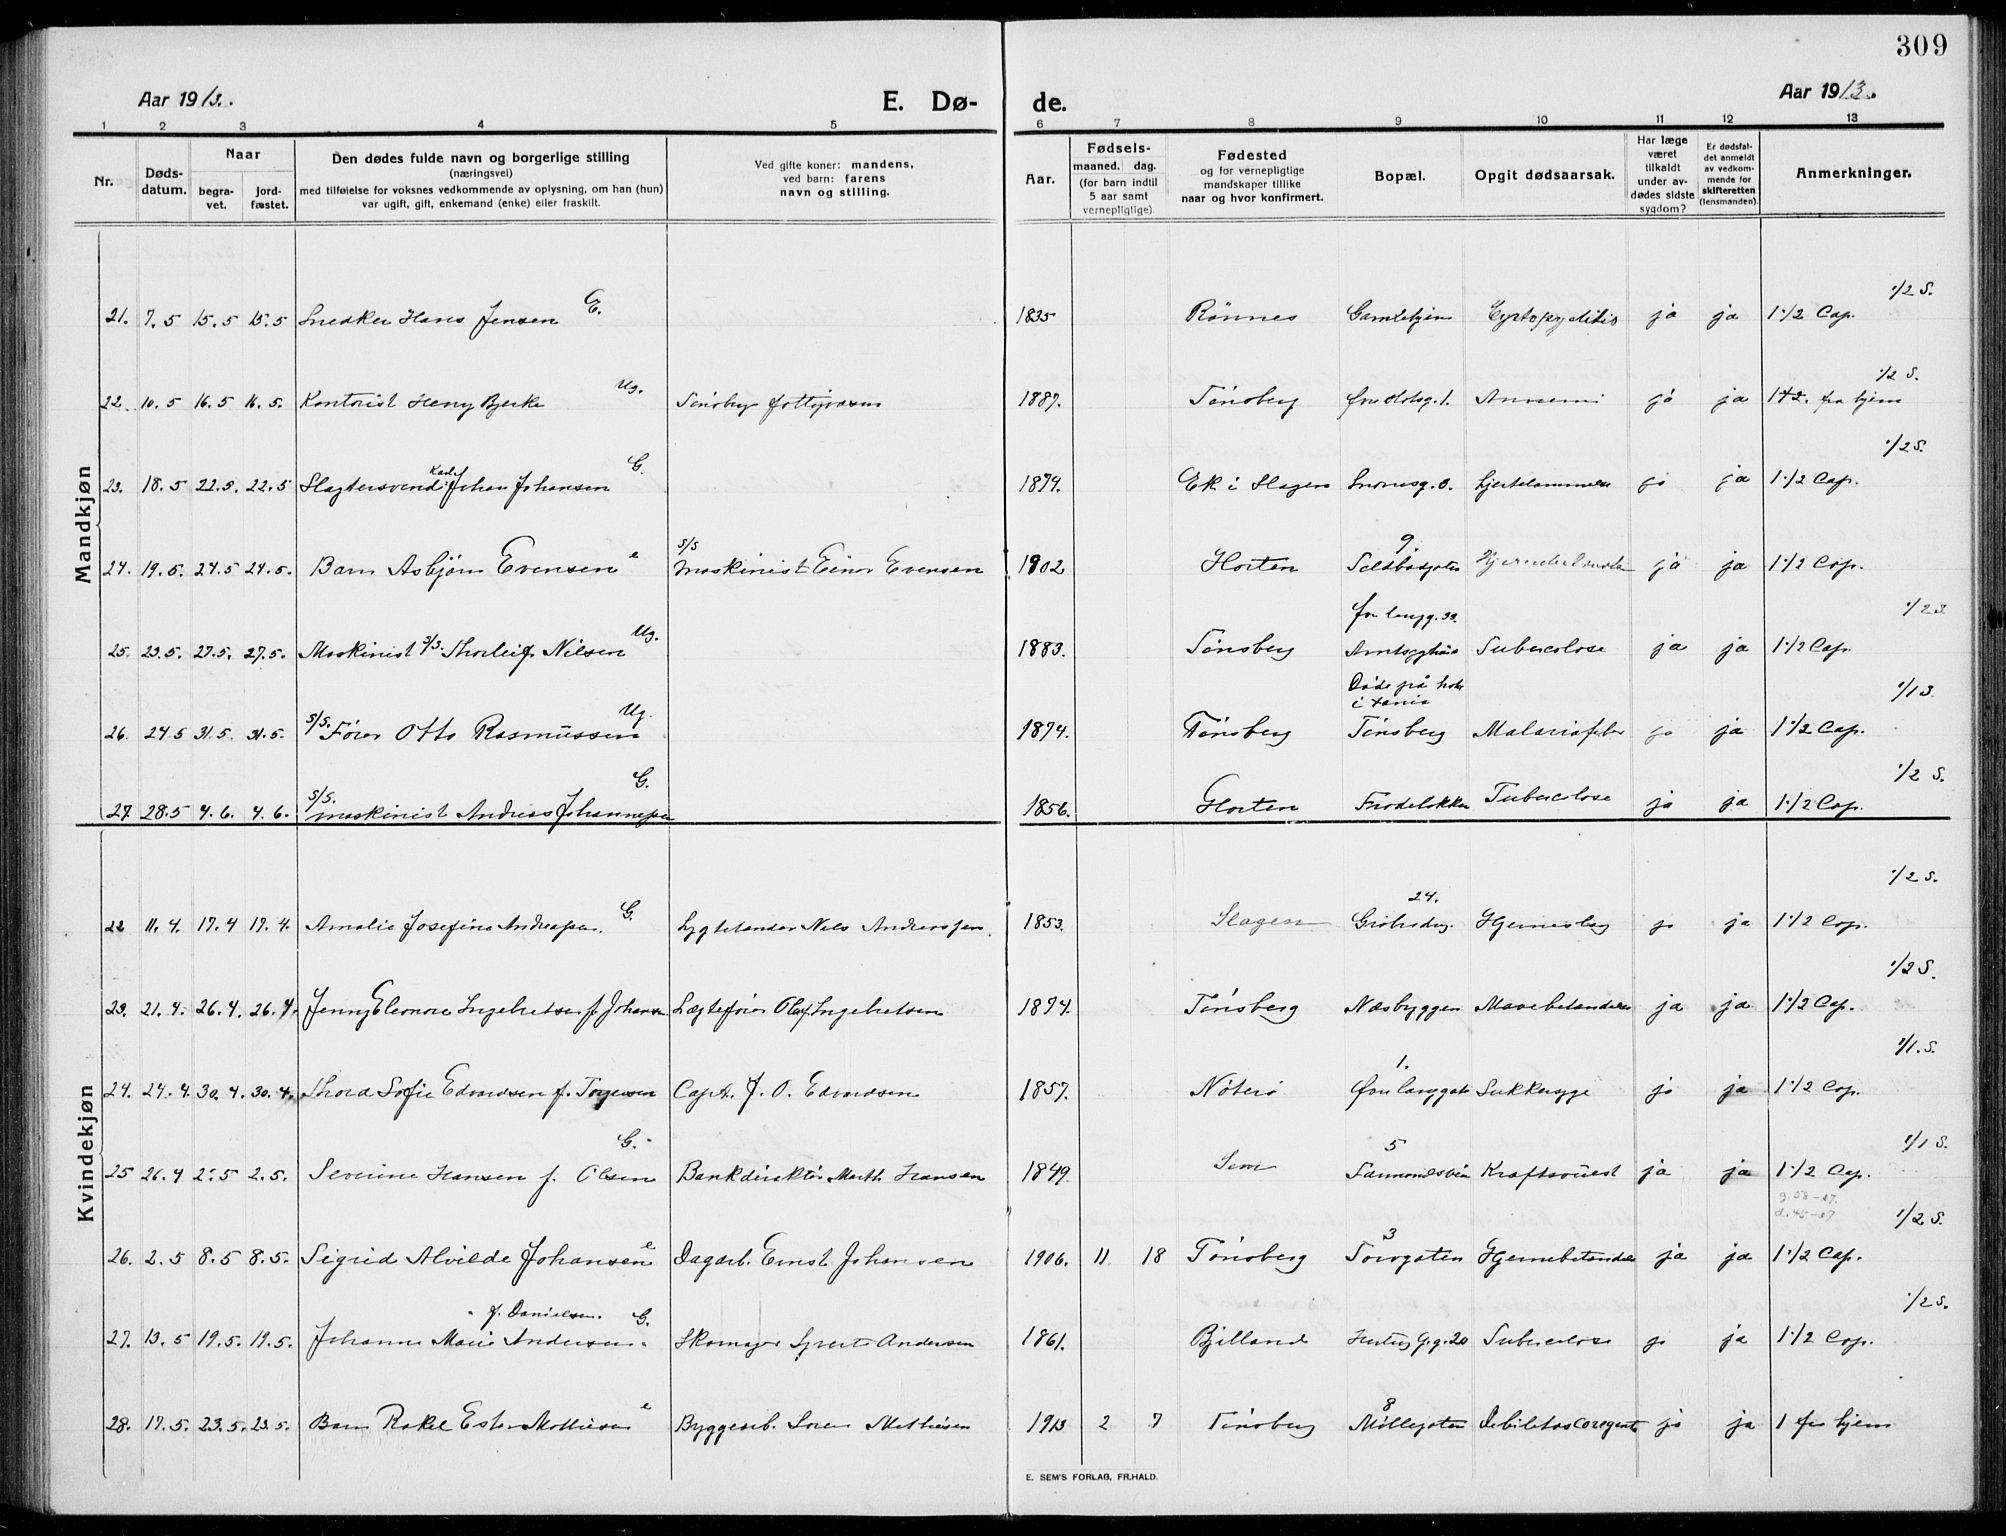 309
Aar 1913.
E. Dø-
de.
Aar 1913.
1 2 3 4 5 6 7 8 9 10 11 12 13
Nr.
Døds-
datum.
Naar
begra-
vet.
jord-
fæstet.
Den dødes fulde navn og borgerlige stilling
(næringsvei)
med tilføielse for voksnes vedkommende av oplysning, om han (hun)
var ugift, gift, enkemand (enke) eller fraskilt.
Ved gifte koner: mandens,
ved barn: farens
navn og stilling.
Aar.
Fødsels-
maaned. dag.
(for barn indtil
5 aar samt
vernepligtige)
Fødested
og for vernepligtige
mandskaper tillike
naar og hvor konfirmert.
Bopæl.
Opgit dødsaarsak.
Har læge
været
tilkaldt
under av-
dødes sidste
sygdom?
Er dødsfal-
det anmeldt
av vedkom-
mende for
skifteretten
(lensmanden).
Anmerkninger.
Mandkjøn
21. 7.5 15.5 15.5 Snedker Hans Jensen E. 1835 Rønnes Gamlehjem ja ja 1 1/2 Cap. 1/2 S.
22. 10.5 16.5 16.5. Kontorist Heny Bjerke Ug. 1887. Tønsberg ja ja fra hjem 1/2 S.
23. 18.5 22.5. 22.5 Slagtersvend Karl Johan Johansen G. 1874. Ek i Slagen ja ja 1 1/2 Cap. 1/2 S.
24. 19.5. 24.5 24.5. Barn Asbjørn Evensen e S/S Maskinist Einar Evensen 1902 Horten 9. ja ja 1 1/2 Cap.
25. 23.5. 27.5. 27.5. Maskinist S/S. Thorleif Nilsen Ug. 1883. Tønsberg Tubercolose ja ja 1 1/2 Cap. 1/2 S
26. 24.5 31.5. 31.5. S/S. Fører Otto Rasmussen Ug. 1874. Tønsberg Døde på Tønsberg Malariafeber ja ja 1 1/2 Cap. 1/1 S.
27. 28.5 4.6. 4.6. S/S. maskinist Andreas Johannessen G. 1856. Horten Fjordeløkken Tubercolose ja ja 1 1/2 Cap. 1/2 S.
Kvindekjøn
22 11.4. 17.4 17.4. Amalie Josefine Andreasen. G. Lygtetænder Nils Andreassen. 1853. Slagen 24. Hjerneslag ja ja 1 1/2 Cap. 1/2 S.
23. 21.4. 26.4. 26.4. Jenny Eleonore Ingebretsen f. Johansen Lægtefører Olaf Ingebretsen 1874. Tønsberg Næsbyggen Mavebetændelse ja ja 1 1/2 Cap. 1/2 S.
24. 24.4. 30.4. 30.4. Thora Sofie Edvardsen f. Torgersen Capt. J. O. Edvardsen 1857. Nøterø 1. Øvre langgate Sukkersyge ja ja 1 1/2 Cap. 1/1. S.
25 26.4 2.5 2.5. Severine Hansen f. Olsen G. Bankdirektør Marth. Hansen 1849. Sem 5 Kraftsvulst ja ja 1 1/2 Cap. 1/1 S.
g. 58-07.
d. 45-07
26. 2.5 8.5 8.5. Sigrid Alvilde Johansen e Dagarb. Ernst Johansen 1906. 11 18 Tønsberg 3 Torvgaten Hjernebetændelse ja ja 1 1/2 Cap. 1/2 S.
27. 13.5 19.5. 19.5. Johanne Marie Andersen. f. Danielsen. G. Skomager Syvert Andersen 1861. Bjelland Tubercolose ja ja 1 1/2 Cap. 1/2 S.
28. 17.5. 23.5. 23.5. Barn Rakel Ester Mathisen e Byggearb. Soren Mathisen 1913 2 7 Tønsberg 8 Møllegaten Debilitas congenita ja ja 1 fra hjem
E. SEM'S FORLAG, FR.HALD.